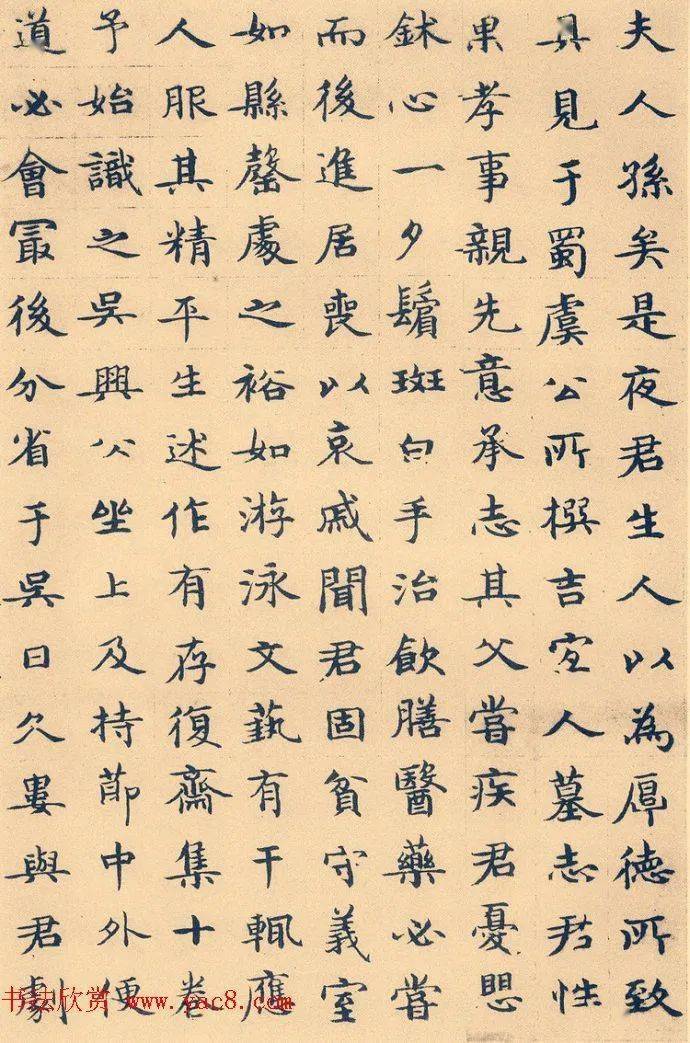 夫人孫矣是夜君生人以為厚德所致
具見于蜀虞公所撰吉宜人墓志君性
果孝事親先意承志其父嘗疾君憂愳
鉥心一夕鬢斑白手治飲膳醫藥必嘗
而後進居喪以哀戚聞君固貧守義室
如縣罄處之裕如游泳文藝有干輒應
人服其精平生述作有存復齋集十卷
予始識之吳興公坐上及持節中外便
道必會冣後分省于吳日久婁與君劇
书法欣赏 www.yac8.com